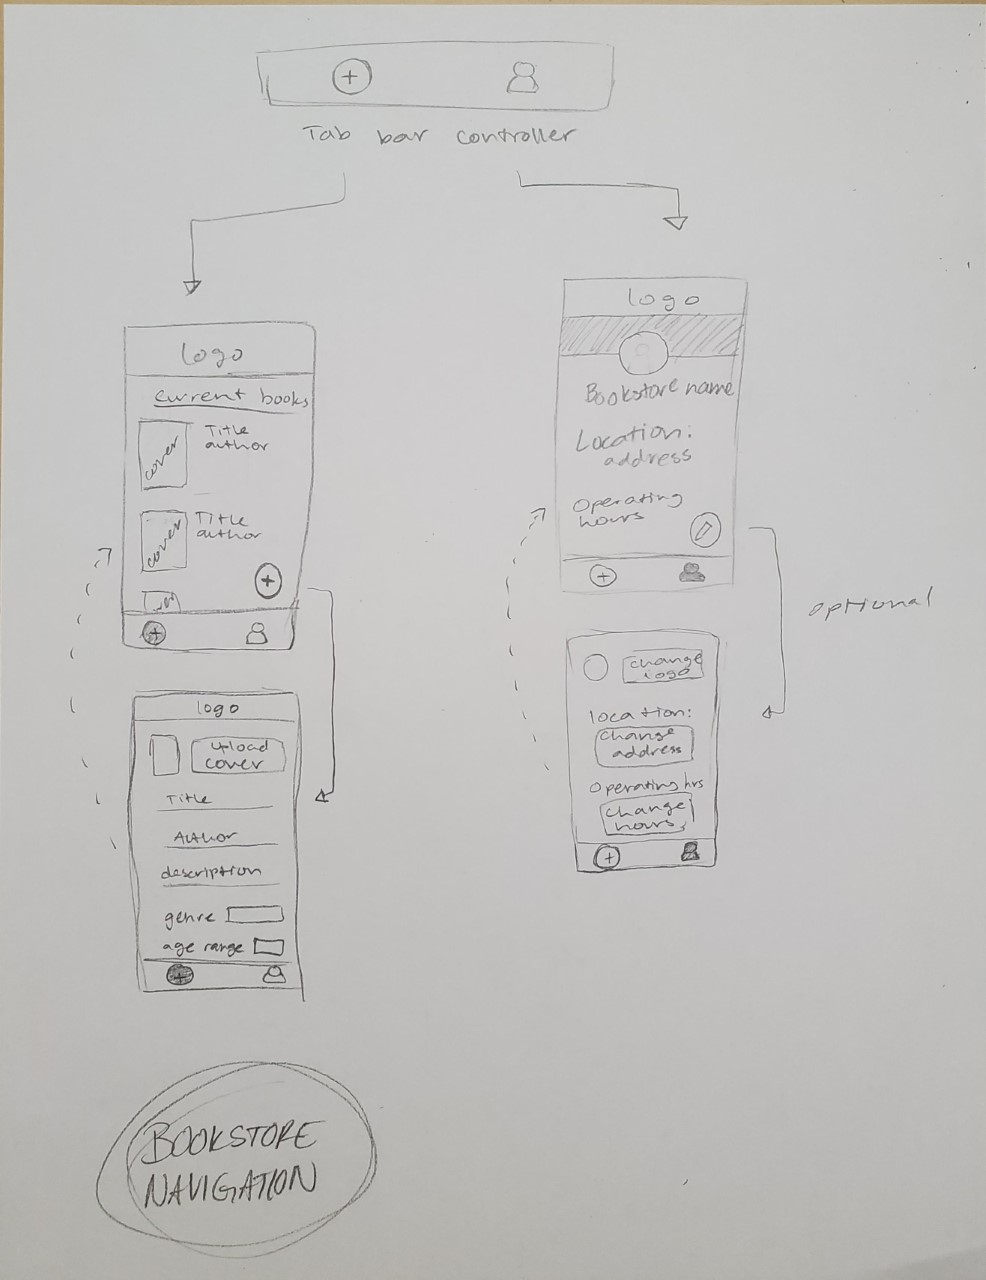 Tab bar controller
logo
current books
cover
Title
author
cover
Title
author
logo
upload
cover
Title
Author
description
genre
age range
logo
Bookstore name
Location:
address
Operating
hours
optional
change
logo
location:
change
address
Operating hrs
change
hours
BOOKSTORE
NAVIGATION